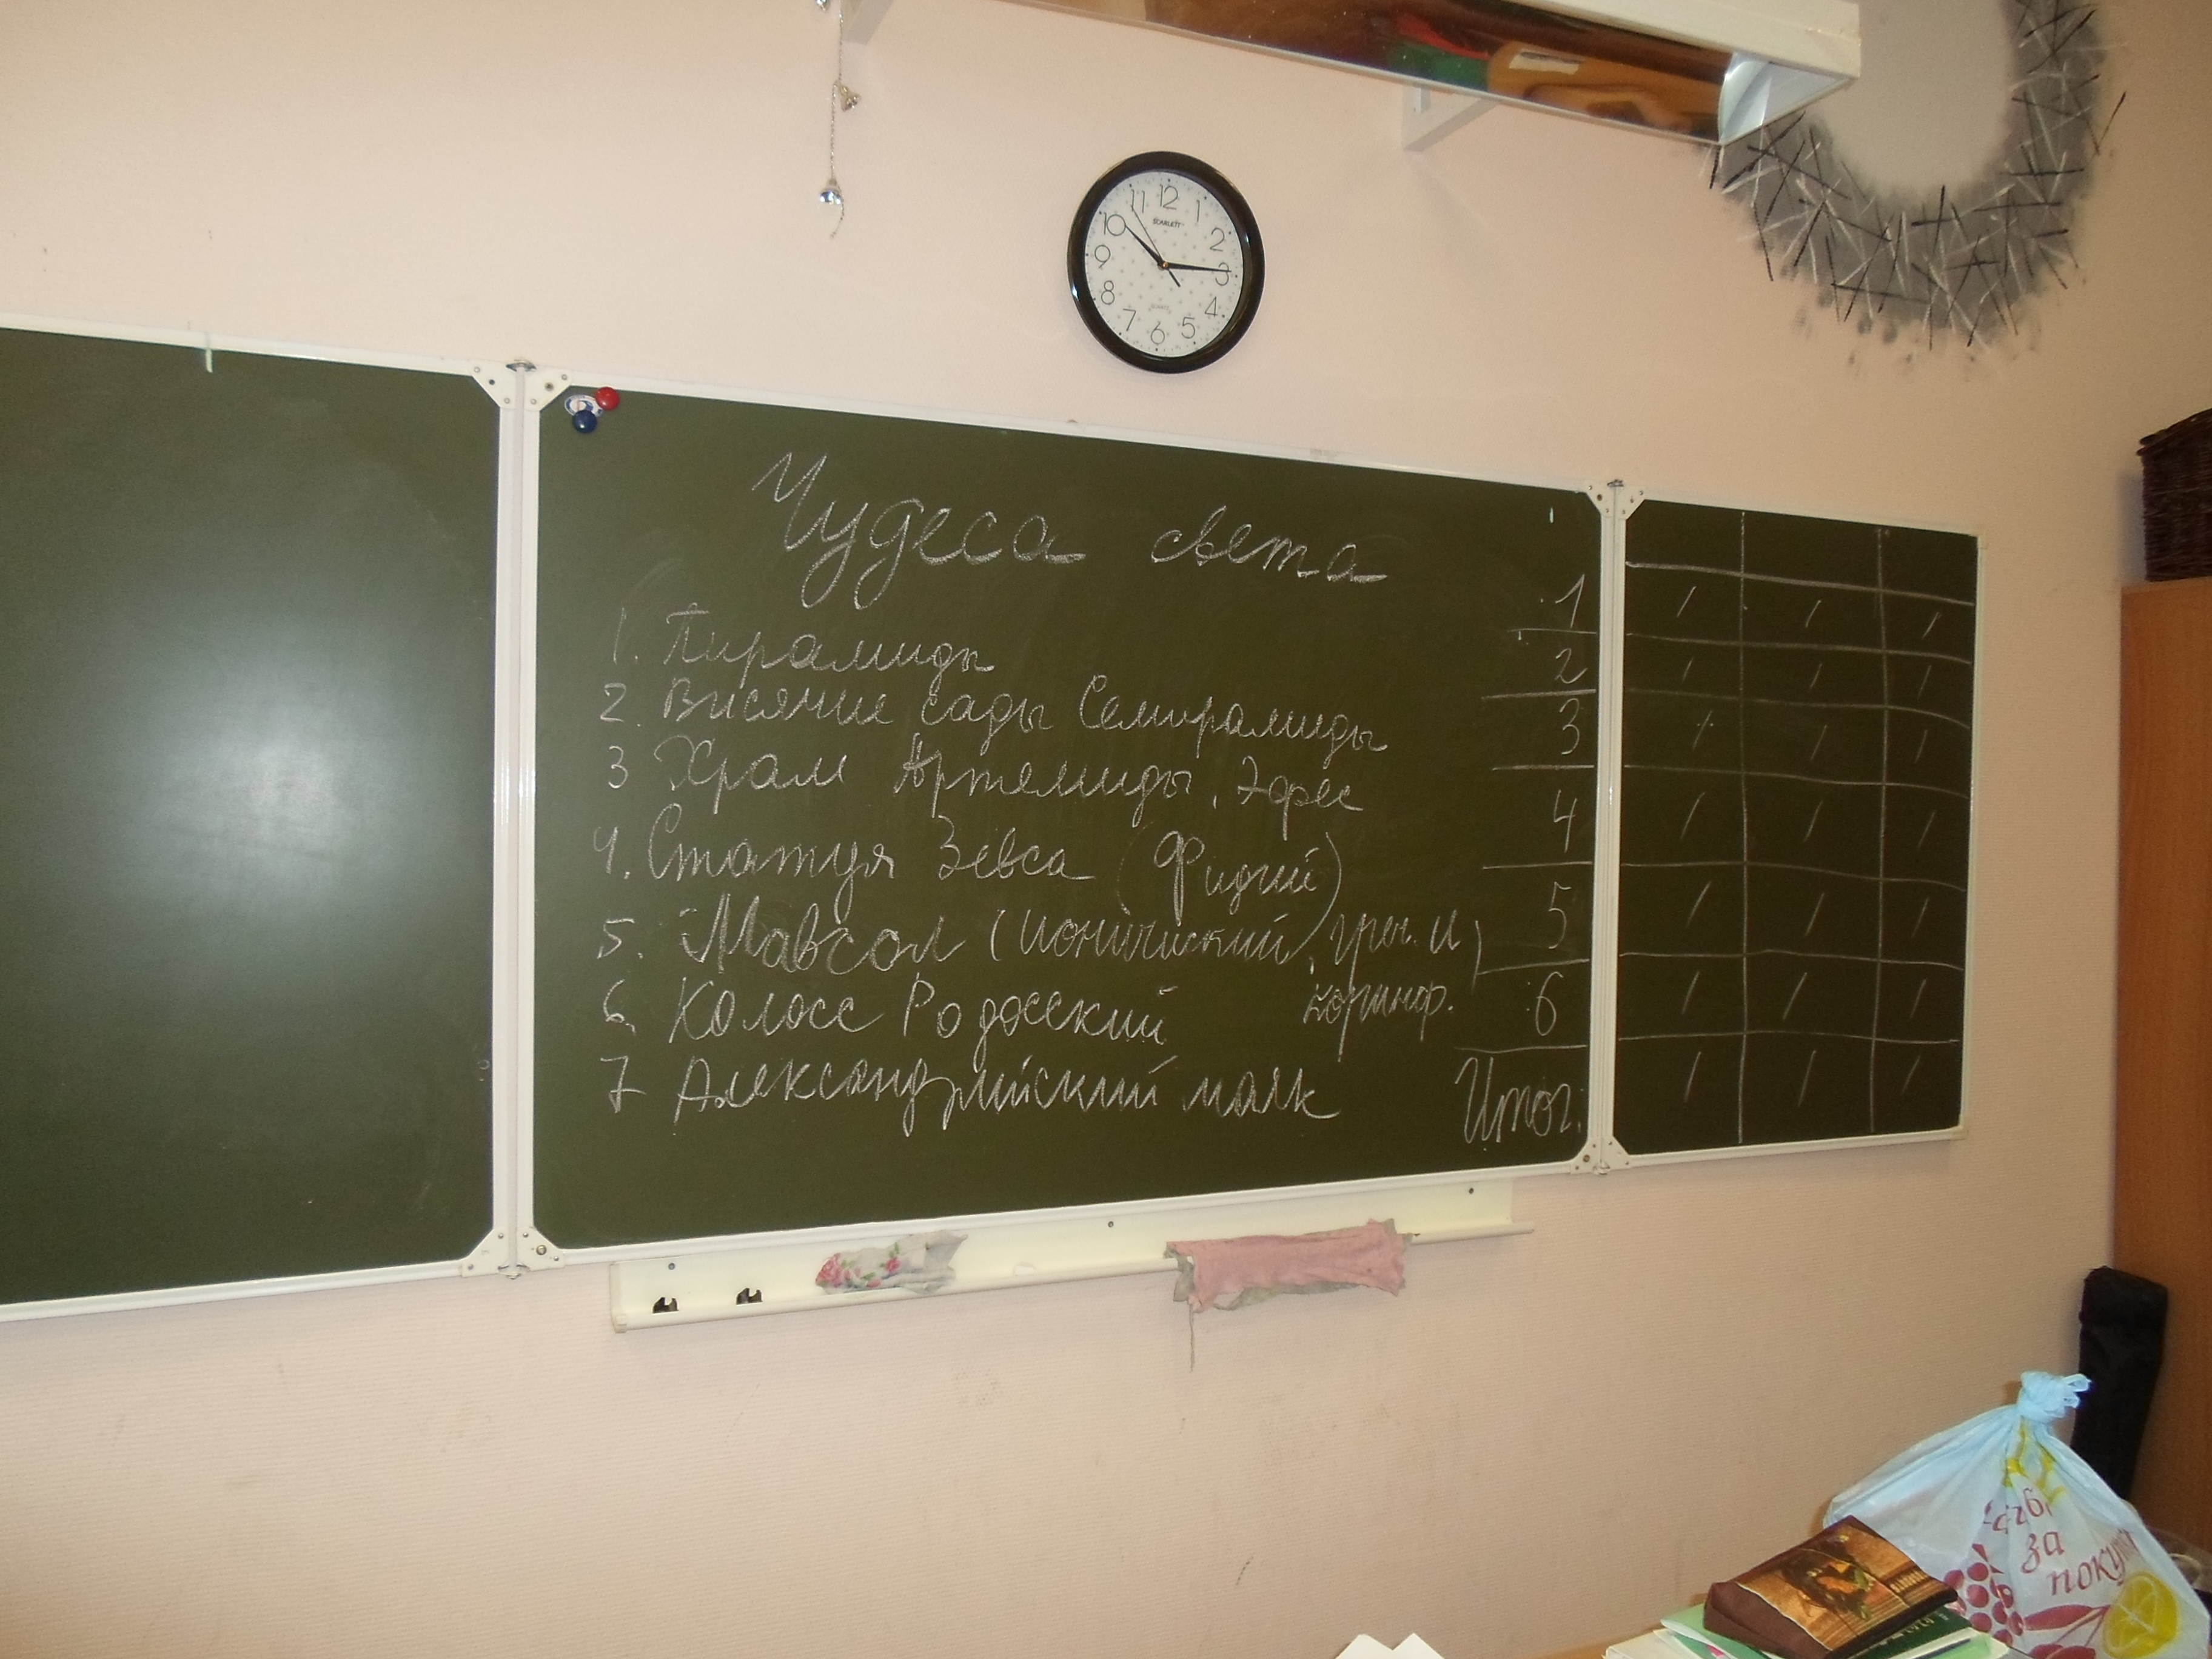 12
1
2
3
4
5
6
7
8
9
10
11
SCARLETT
QUARTZ
Чудеса света
1. Пирамиды
2. Висячие сады Семирамиды
3 Храм Артемиды, Эфес
4. Статуя Зевса (Фидий)
5. Мавсол (ионический, греч. и
коринф.)
6. Колосс Родосский
7 Александрийский маяк
1
2
3
4
5
6
Итог.
/ / /
/ / /
/ / /
/ / /
/ / /
/ / /
/ / /
за